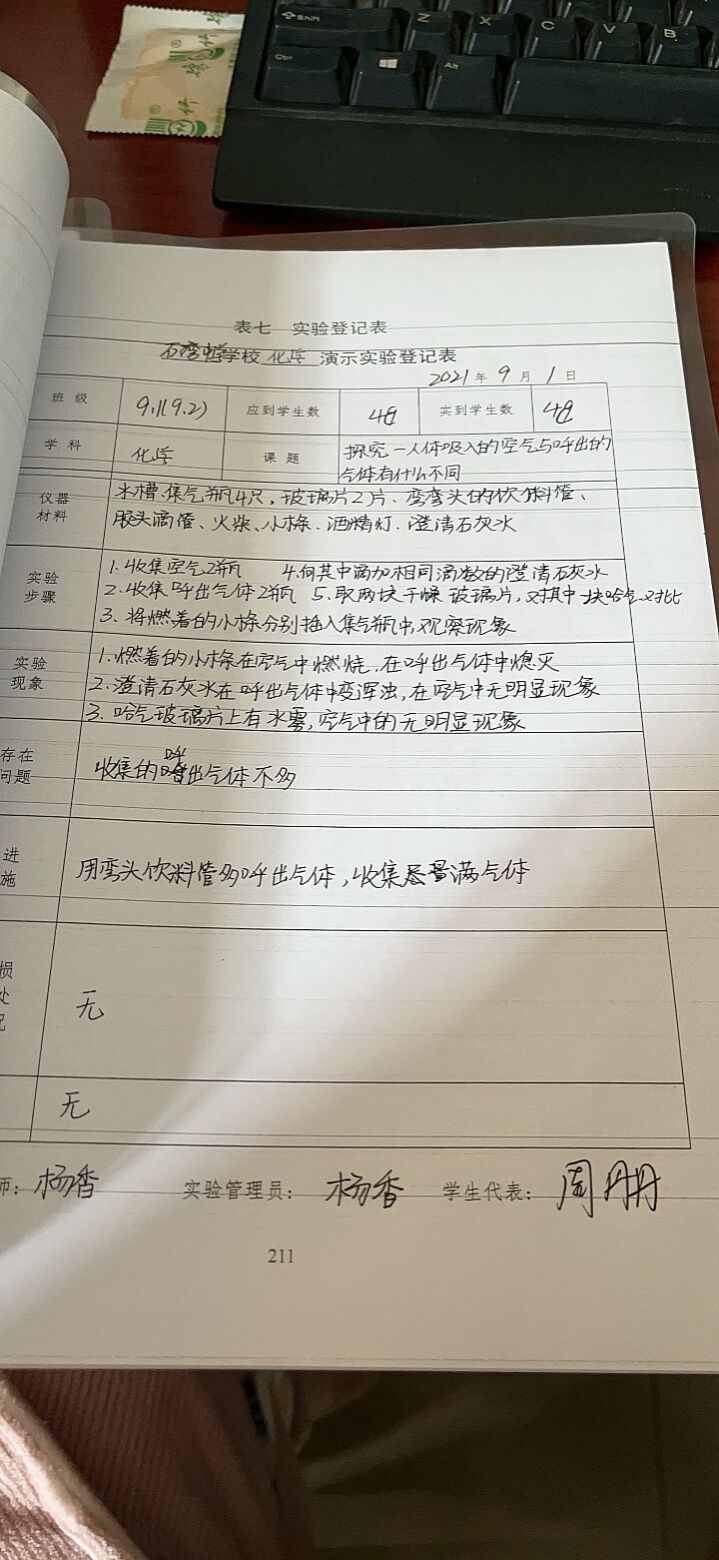 Shift
Z X C V B
Ctrl
Alt
表七 实验登记表
石湾中学学校 化学 演示实验登记表
2021年 9 月 1 日
班级 9.1(9.2) 应到学生数 实到学生数
学科 化学 课题 探究一人体吸入的空气与呼出的
气体有什么不同
仪器
材料
水槽.集气瓶4只,玻璃片2片、弯弯头的饮料管、
胶头滴管、火柴、小木条、酒精灯.澄清石灰水
实验
步骤
1.收集空气2瓶 4.向其中滴加相同滴数的澄清石灰水
2.收集呼出气体2瓶 5.取两块干燥玻璃片,对其中一块哈气.对比
3.将燃着的小木条分别插入集气瓶中,观察现象
实验
现象
1.燃着的小木条在空气中燃烧.在呼出气体中熄灭
2.澄清石灰水在呼出气体中变浑浊,在空气中无明显现象
3.哈气玻璃片上有水雾,空气中的无明显现象
存在
问题
收集的呼出气体不多
进
施
用弯头饮料管多呼出气体,收集尽量满气体
损
处
况
无
无
师: 杨香 实验管理员: 杨香 学生代表: 周丹丹
211